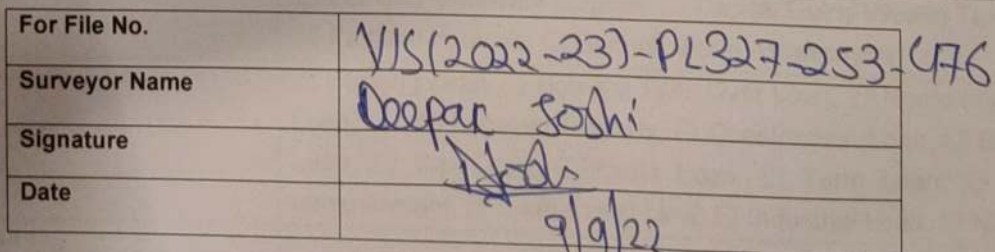 For File No. VIS(2022-23)-PL327-253-476
Surveyor Name Deepak Joshi
Signature
Date 9/9/22